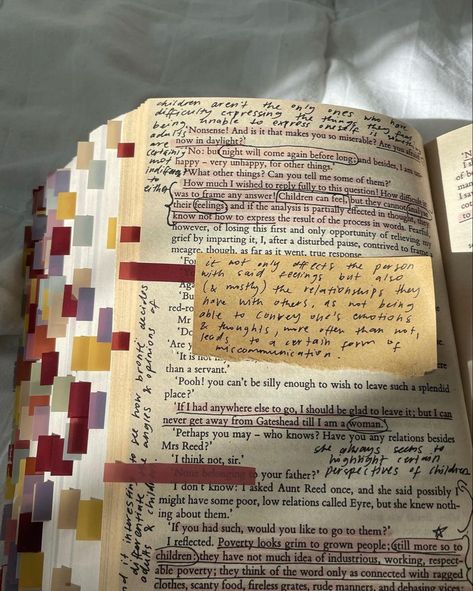 children aren't the only ones who have
difficulty expressing the things they feel
being unable to express oneself is
adults
are
certainly
not
indifferent
to
either
'Nonsense! And is it that makes you so miserable? Are you afraid
now in daylight?'
'No: but night will come again before long; and besides, I am
happy – very unhappy, for other things.'
'What other things? Can you tell me some of them?'
How much I wished to reply fully to this question! How difficult it
was to frame any answer! Children can feel, but they cannot analyse
their feelings; and if the analysis is partially effected in thought, they
know not how to express the result of the process in words. Fearful,
however, of losing this first and only opportunity of relieving my
grief by imparting it, I, after a disturbed pause, contrived to frame
meagre, though, as far as it went, true response.
it not only affects the person
with said feelings but also
(& mostly) the relationships they
have with others, as not being
able to convey one's emotions
& thoughts, more often than not,
leads to a certain form of
miscommunication.
red-ro
Mr
'Do
'Are y
'It is not
than a servant.'
'Pooh! you can't be silly enough to wish to leave such a splendid
place?'
'If I had anywhere else to go, I should be glad to leave it; but I can
never get away from Gateshead till I am a woman.'
'Perhaps you may – who knows? Have you any relations besides
Mrs Reed?'
'I think not, sir.'
she always seems to
highlight certain
perspectives of children
'None belonging to your father?'
'I don't know: I asked Aunt Reed once, and she said possibly I
might have some poor, low relations called Eyre, but she knew noth-
ing about them.'
'If you had such, would you like to go to them?'
I reflected. Poverty looks grim to grown people; still more so to
children: they have not much idea of industrious, working, respect-
able poverty; they think of the word only as connected with ragged
clothes, scanty food, fireless grates, rude manners, and debasing vices:
interesting to see how brontë decides
differentiate the angles & opinions of
adults & children